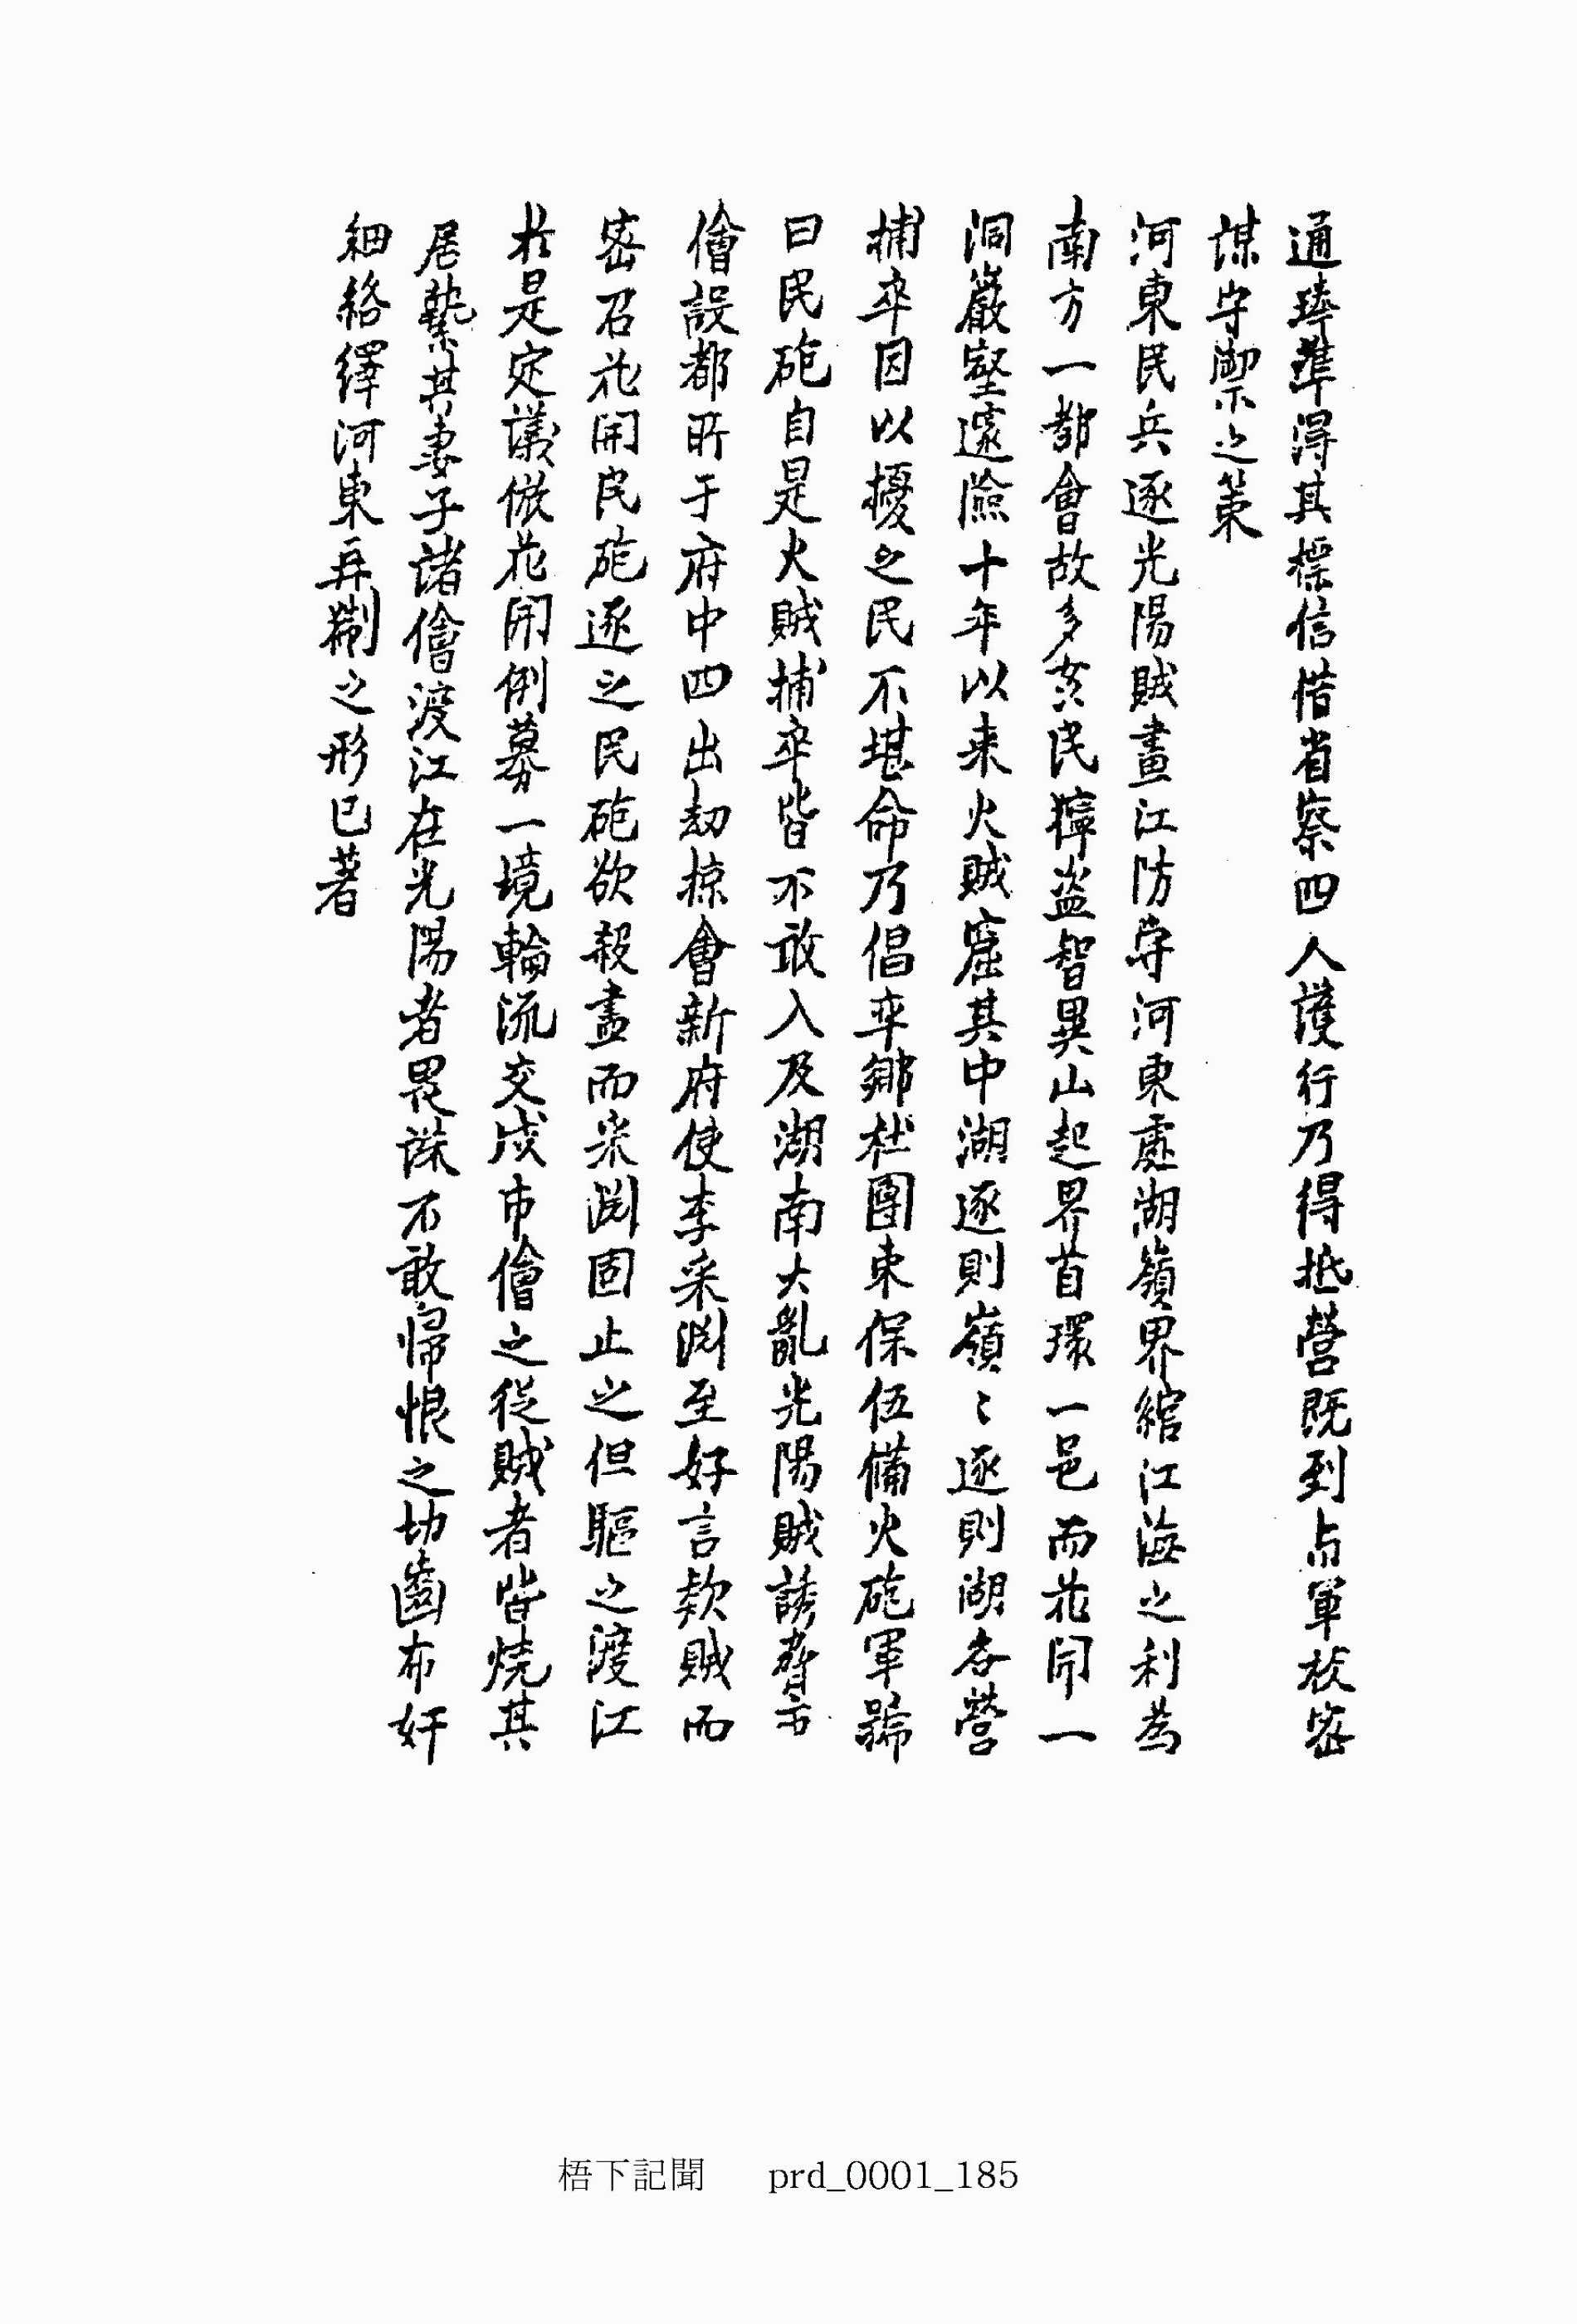 通琫準得其標信借省察四人護行乃得抵營既到点軍校密
謀守禦之策
河東民兵逐光陽賊畫江防守河東處湖嶺界綰江海之利為
南方一都會故多莠民獰盜智異山起界首環一邑而花開一
洞巖壑邃險十年以来火賊窟其中湖逐則嶺〻逐則湖各營
捕卒因以擾之民不堪命乃倡率鄉社團束保伍備火砲軍號
曰民砲自是火賊捕卒皆不敢入及湖南大亂光陽賊誘脅市
儈設都所于府中四出刼掠會新府使李采淵至好言欵賊而
密召花開民砲逐之民砲欲殺盡而采淵固止之但驅之渡江
於是定議倣花開例募一境輪流交戍市儈之從賊者皆燒其
居縶其妻子諸儈渡江在光陽者畏誅不敢歸恨之切齒布奸
細絡繹河東再刱之形已著